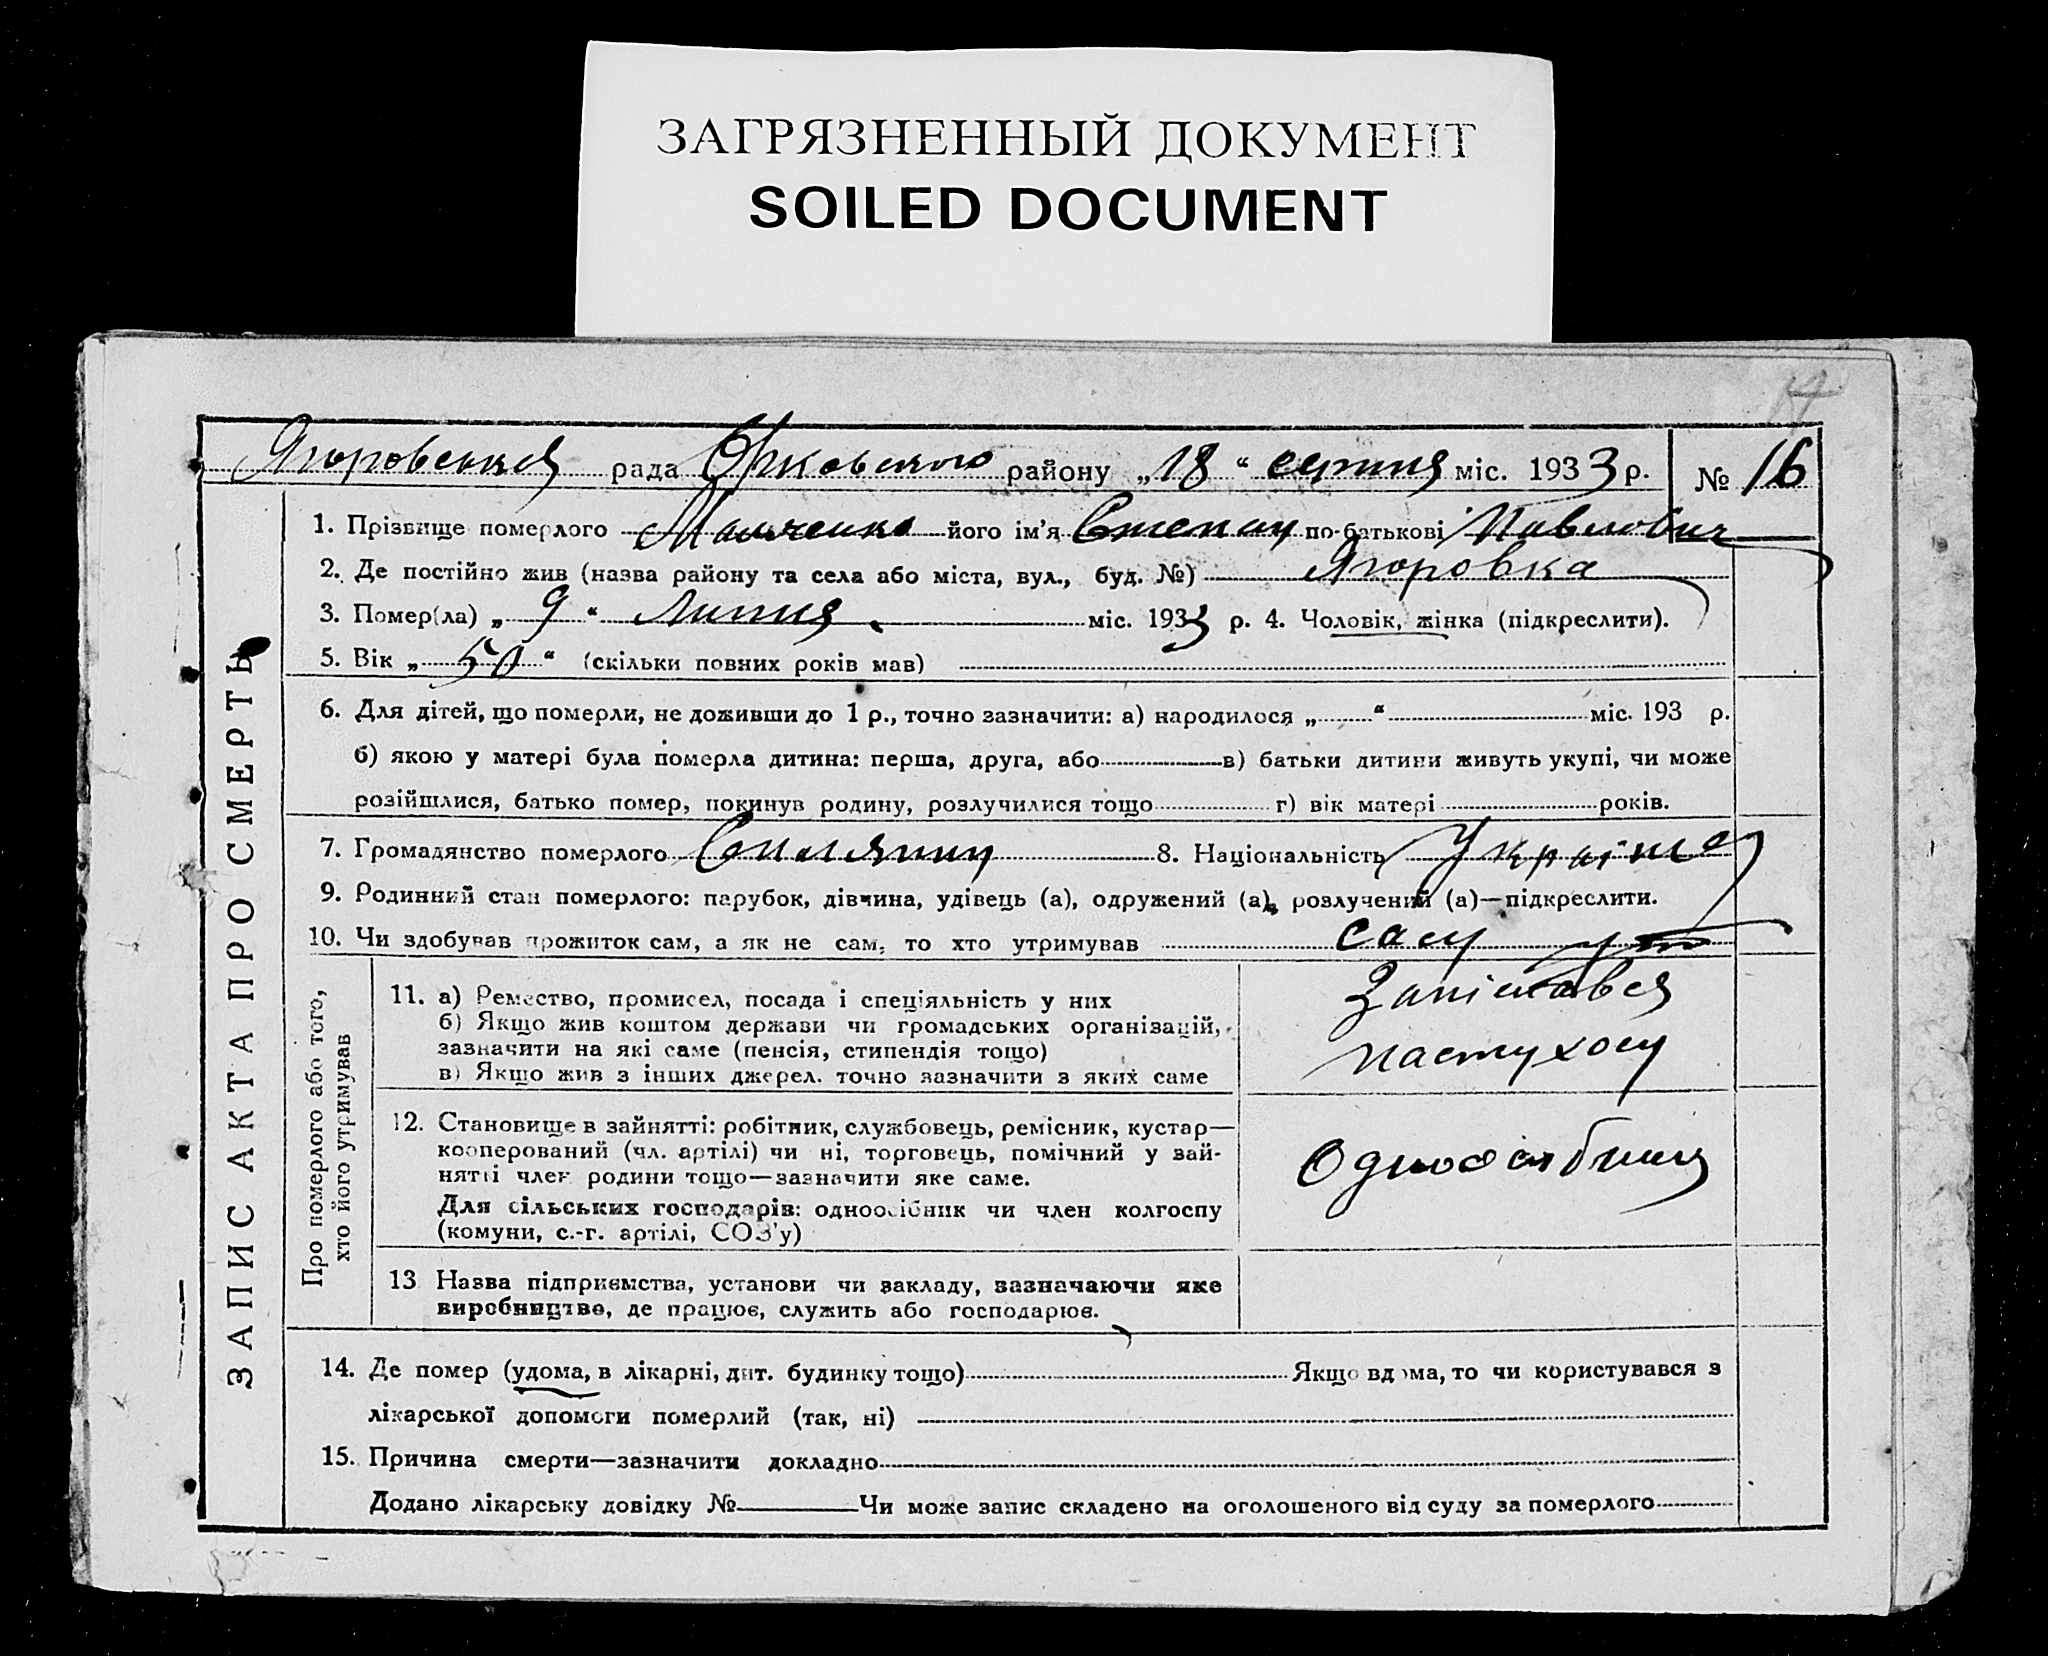 ЗАГРЯЗНЕННЫЙ ДОКУМЕНТ
SOILED DOCUMENT
17
Ягоровська рада район у „18“ серпня міс. 1933 р. № 16
1. Прізвище померлого його ім'я Степан по-батькові Павлович
2. Де постійно жив (назва району та села або міста, вул., буд. №) Ягоровка
3. Помер(ла) „9“ Липня міс. 1933 р. 4. Чоловік, жінка (підкреслити).
5. Вік „50“ (скільки повних років мав)
6. Для дітей, що померли, не доживши до 1 р., точно зазначити: а) народилося „ “ міс. 193 р.
б) якою у матері була померла дитина: перша, друга, або в) батьки дитини живуть укупі, чи може
розійшлися, батько помер, покинув родину, розлучилися тощо г) вік матері років.
7. Громадянство померлого Селянин 8. Національність Українец
9. Родинний стан померлого: парубок, дівчина, удівець (а), одружений (а), розлучений (а)—підкреслити.
10. Чи здобував прожиток сам, а як не сам, то хто утримував сам
ЗАПИС АКТА ПРО СМЕРТЬ
Про померлого або того,
хто його утримував
11. а) Ремество, промисел, посада і спеціяльність у них
б) Якщо жив коштом держави чи громадських організацій,
зазначити на які саме (пенсія, стипендія тощо)
в) Якщо жив з інших джерел. точно зазначити з яких саме
пастухом
12. Становище в зайнятті: робітник, службовець, ремісник, кустар—
кооперований (чл. артілі) чи ні, торговець, помічний у зай-
нятті член родини тощо—зазначити яке саме.
Для сільських господарів: одноосібник чи член колгоспу
(комуни, с.-г. артілі, СОЗ'у)
13 Назва підприємства, установи чи закладу, зазначаючи яке
виробництво, де працює, служить або господарює.
14. Де помер (удома, в лікарні, дит. будинку тощо) Якщо вдома, то чи користувався з
лікарської допомоги померлий (так, ні)
15. Причина смерти—зазначити докладно
Додано лікарську довідку № Чи може запис складено на оголошеного від суду за померлого